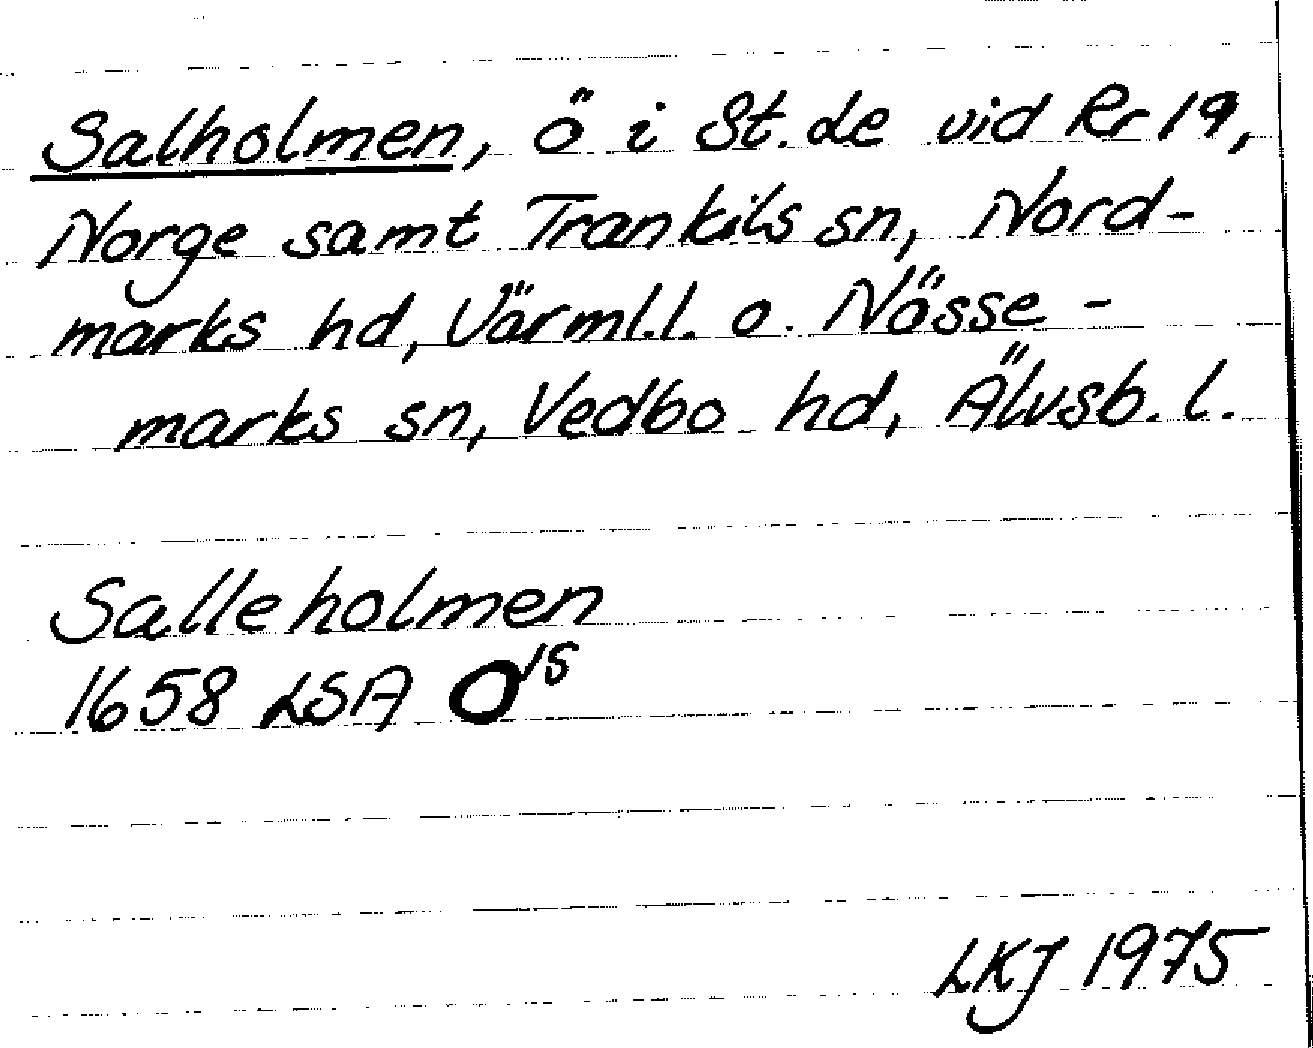 Salholmen, ö i St. Le vid Rr 19,
Norge samt Trankils sn, Nord-
marks hd, Värml.l. o. Nösse-
marks sn, Vedbo hd, Älvsb. l.
Salleholmen
1658 LSA O 15
LKJ 1975